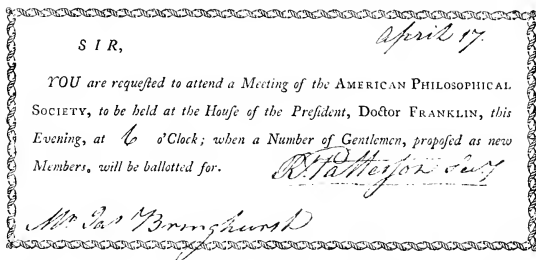 April 17.
SIR,
YOU are requeſted to attend a Meeting of the AMERICAN PHILOSOPHICAL
SOCIETY, to be held at the Houſe of the Preſident, Doctor FRANKLIN, this
Evening, at 6 o'Clock; when a Number of Gentlemen, propoſed as new
Members, will be ballotted for.
R. Patterson Secy
Mr. Jas Bringhurst